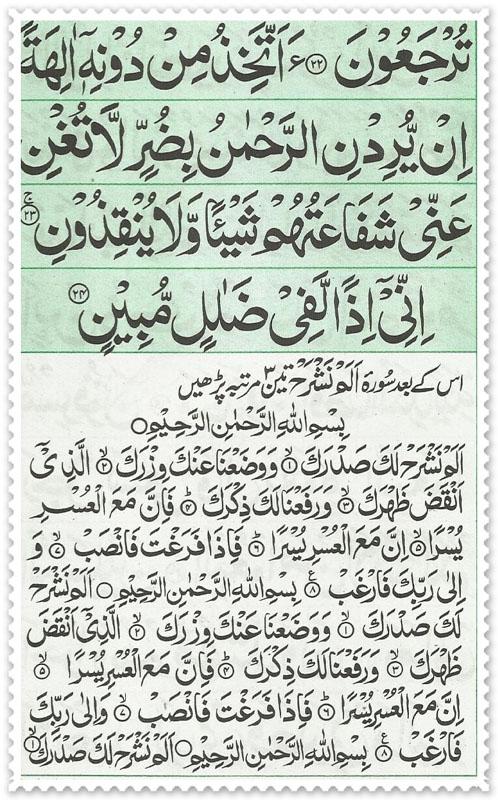 تُرْجَعُوْنَ ﴿۲۲﴾ ءَاَتَّخِذُ مِنْ دُوْنِهٖۤ اٰلِهَةً
اِنْ يُّرِدْنِ الرَّحْمٰنُ بِضُرٍّ لَّا تُغْنِ
عَنِّيْ شَفَاعَتُهُمْ شَيْئًا وَّلَا يُنْقِذُوْنِ ﴿۲۳﴾ ج
اِنِّيْۤ اِذًا لَّفِيْ ضَلٰلٍ مُّبِيْنٍ ﴿۲۴﴾
اس کے بعد سُورۃ اَلَمْ نَشْرَحْ تین ۳ مرتبہ پڑھیں
بِسْمِ اللهِ الرَّحْمٰنِ الرَّحِيْمِ ○
اَلَمْ نَشْرَحْ لَكَ صَدْرَكَ ﴿۱﴾ لا وَوَضَعْنَا عَنْكَ وِزْرَكَ ﴿۲﴾ لا الَّذِيْۤ
اَنْقَضَ ظَهْرَكَ ﴿۳﴾ لا وَرَفَعْنَا لَكَ ذِكْرَكَ ﴿۴﴾ ط فَاِنَّ مَعَ الْعُسْرِ
يُسْرًا ﴿۵﴾ لا اِنَّ مَعَ الْعُسْرِ يُسْرًا ﴿۶﴾ ط فَاِذَا فَرَغْتَ فَانْصَبْ ﴿۷﴾ لا وَ
اِلٰى رَبِّكَ فَارْغَبْ ﴿۸﴾ ع بِسْمِ اللهِ الرَّحْمٰنِ الرَّحِيْمِ ○ اَلَمْ نَشْرَحْ
لَكَ صَدْرَكَ ﴿۱﴾ لا وَوَضَعْنَا عَنْكَ وِزْرَكَ ﴿۲﴾ لا الَّذِيْۤ اَنْقَضَ
ظَهْرَكَ ﴿۳﴾ لا وَرَفَعْنَا لَكَ ذِكْرَكَ ﴿۴﴾ ط فَاِنَّ مَعَ الْعُسْرِ يُسْرًا ﴿۵﴾ لا
اِنَّ مَعَ الْعُسْرِ يُسْرًا ﴿۶﴾ ط فَاِذَا فَرَغْتَ فَانْصَبْ ﴿۷﴾ لا وَاِلٰى رَبِّكَ
فَارْغَبْ ﴿۸﴾ ع بِسْمِ اللهِ الرَّحْمٰنِ الرَّحِيْمِ ○ اَلَمْ نَشْرَحْ لَكَ صَدْرَكَ ﴿۱﴾ لا